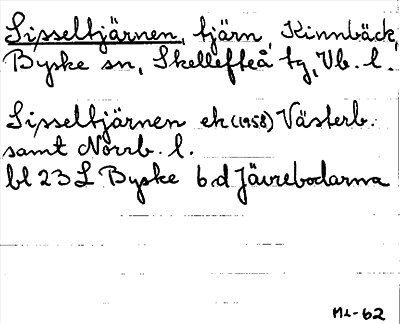 Sisseltjärnen, tjärn, Kinnbäck,
Byske sn, Skellefteå tg, Vb. l.
Sisseltjärnen ek (1958) Västerb.
samt Norrb. l.
bl 23 L Byske 6 d Jävrebodarna